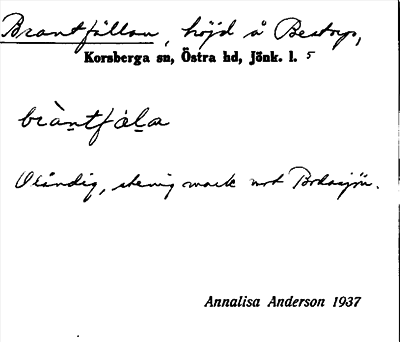 Brantfällan, höjd å Bestorp,
Korsberga sn, Östra hd, Jönk. l. 5
bràntfàla
Oländig, stenig mark mot Bodasjön.
Annalisa Anderson 1937